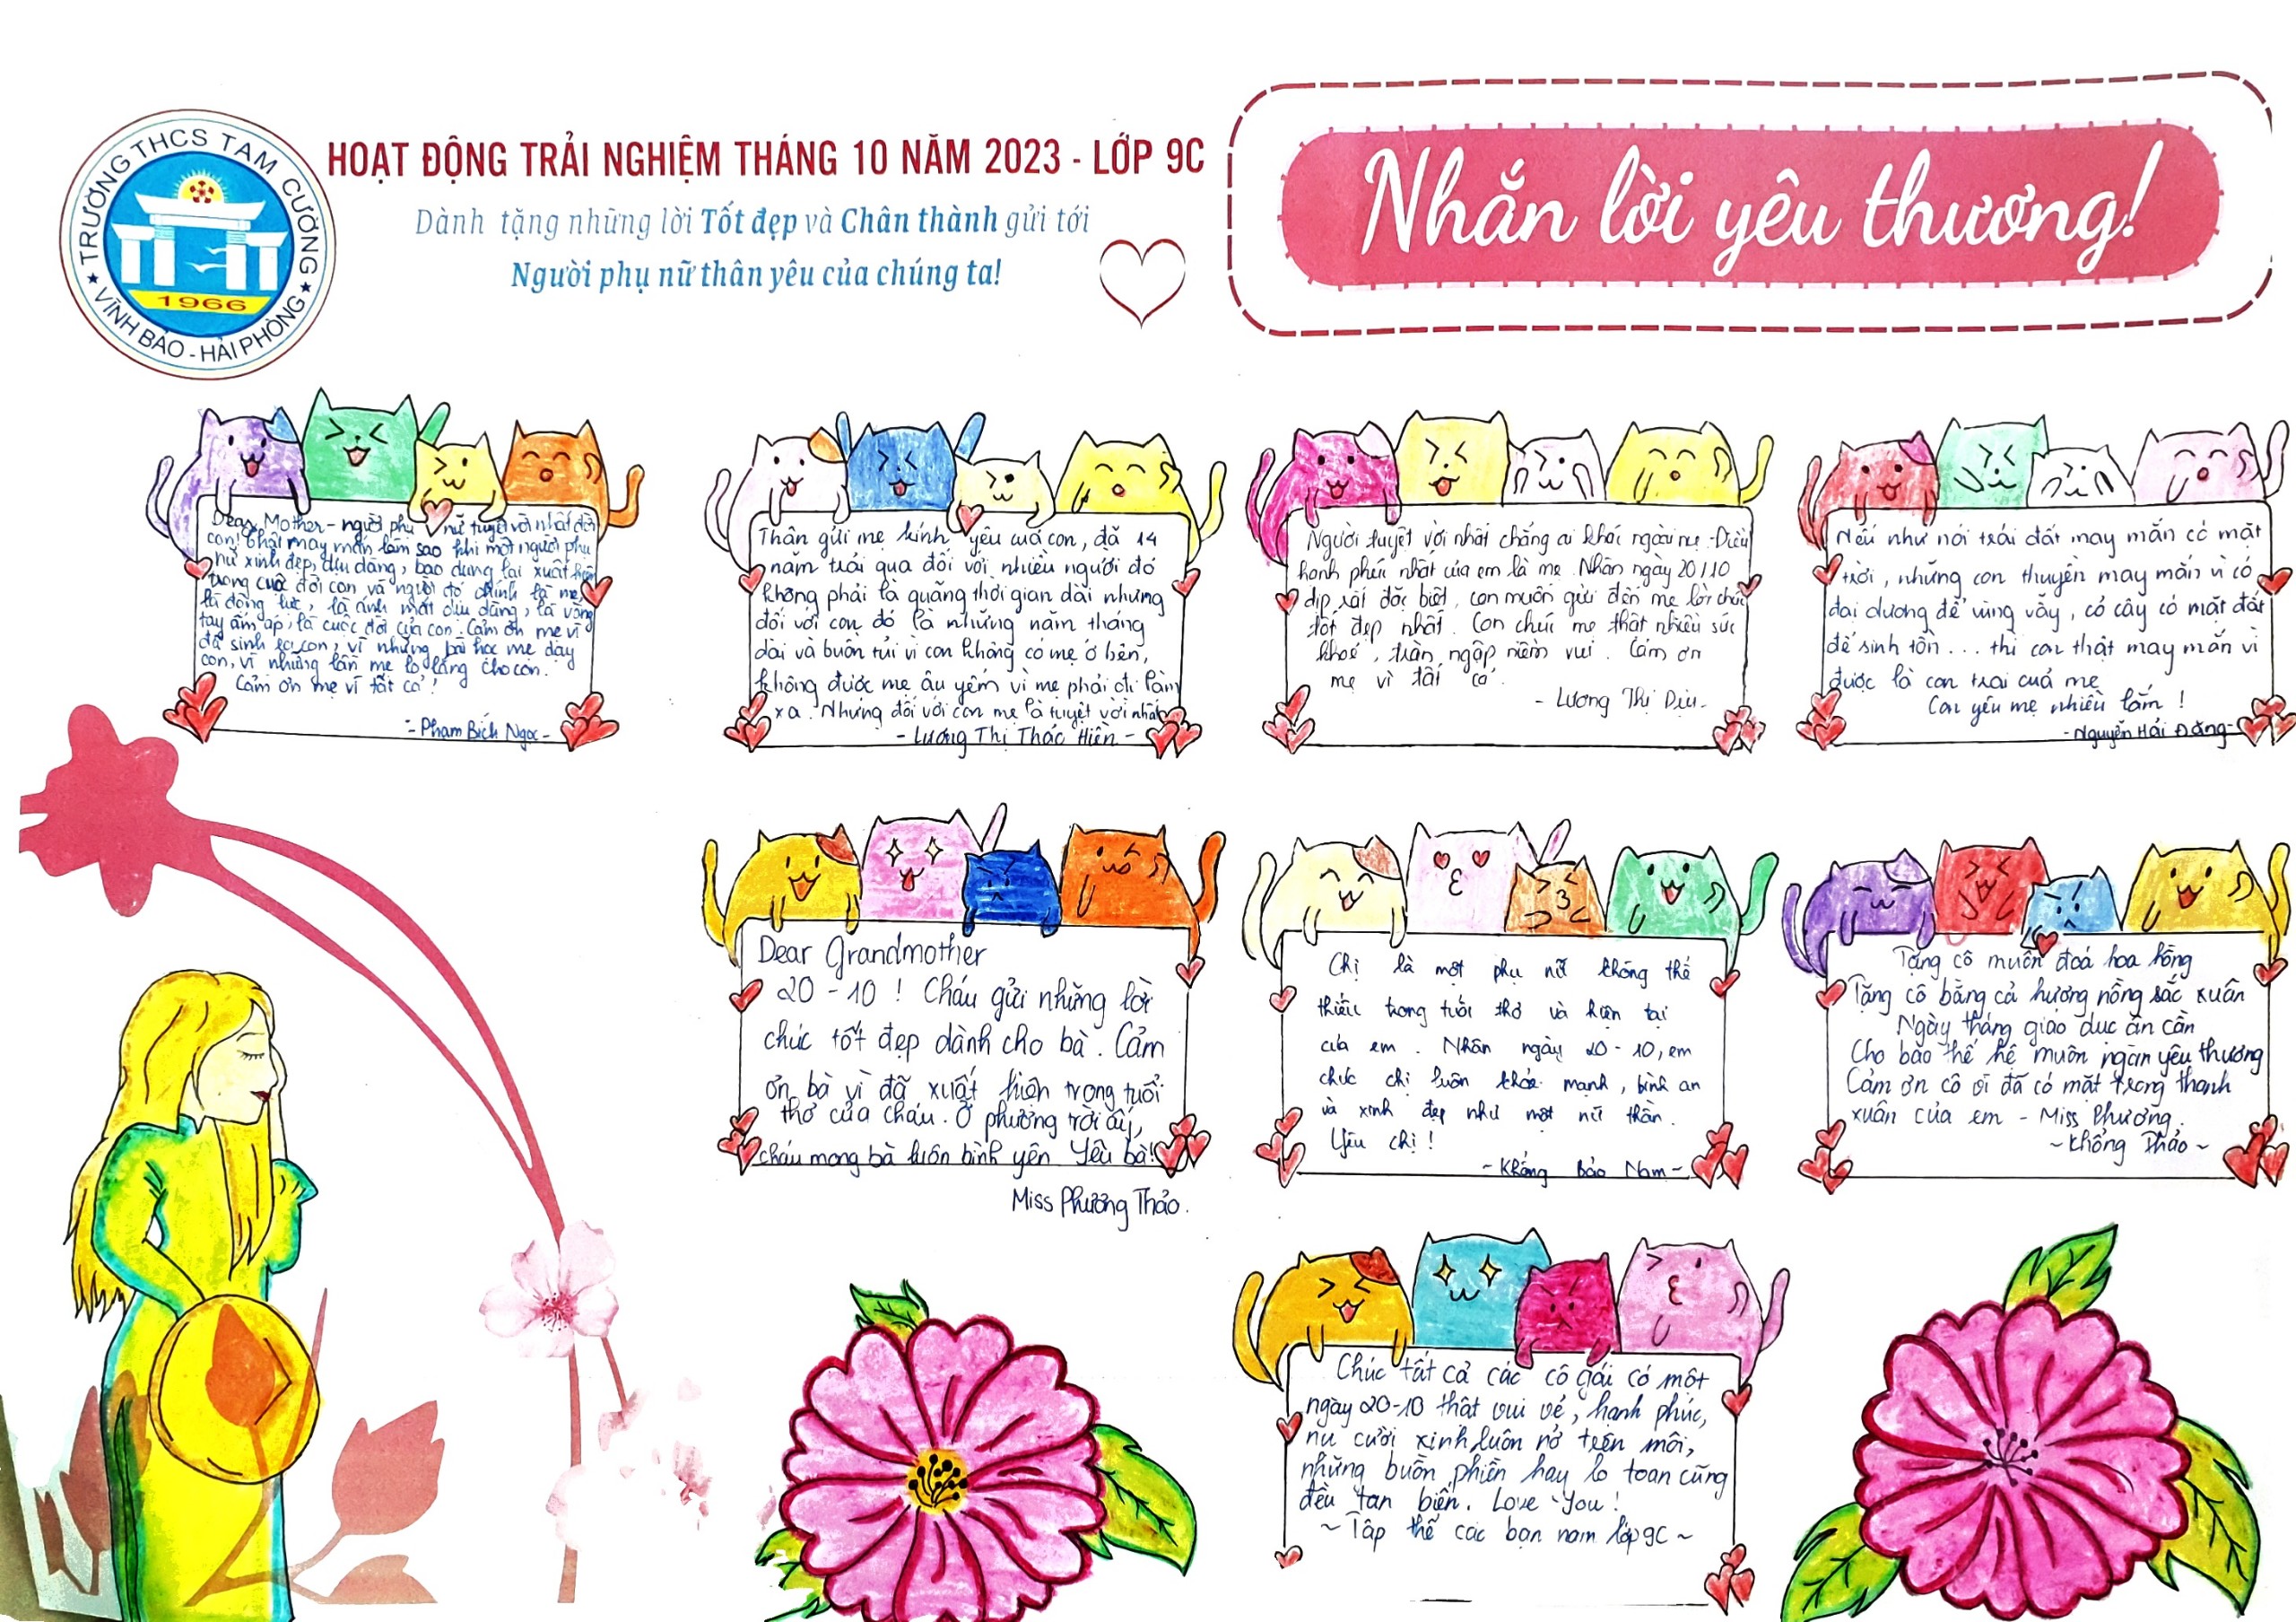 TRƯỜNG THCS TAM CƯỜNG
1966
VĨNH BẢO - HẢI PHÒNG
HOẠT ĐỘNG TRẢI NGHIỆM THÁNG 10 NĂM 2023 - LỚP 9C
Dành tặng những lời Tốt đẹp và Chân thành gửi tới
Người phụ nữ thân yêu của chúng ta!
Nhắn lời yêu thương!
Dear Mother - người phụ nữ tuyệt vời nhất đời
con! Thật may mắn làm sao khi một người phụ
nữ xinh đẹp, dịu dàng, bao dung lại xuất hiện
trong cuộc đời con và người đó chính là mẹ,
là động lực, là ánh mắt dịu dàng, là vòng
tay ấm áp, là cuộc đời của con. Cảm ơn mẹ vì
đã sinh ra con, vì những bài học mẹ dạy
con, vì những lần mẹ lo lắng cho con.
Cảm ơn mẹ vì tất cả!
- Phạm Bích Ngọc -
Thân gửi mẹ kính yêu của con, đã 14
năm tuổi qua đối với nhiều người đó
không phải là quãng thời gian dài nhưng
đối với con đó là những năm tháng
dài và buồn tủi vì con không có mẹ ở bên,
không được mẹ âu yếm vì mẹ phải đi làm
xa. Nhưng đối với con mẹ là tuyệt vời nhất
- Lương Thị Thác Hiền -
Người tuyệt vời nhất chẳng ai khác ngoài mẹ. Điều
hạnh phúc nhất của em là mẹ. Nhân ngày 20/10
dịp rất đặc biệt, con muốn gửi đến mẹ lời chúc
tốt đẹp nhất. Con chúc mẹ thật nhiều sức
khoẻ, tràn ngập niềm vui. Cảm ơn
mẹ vì tất cả.
- Lương Thị Dịu -
Nếu như nói trái đất may mắn có mặt
trời, những con thuyền may mắn vì có
đại dương để vùng vẫy, cỏ cây có mặt đất
để sinh tồn... thì con thật may mắn vì
được là con trai của mẹ
Con yêu mẹ nhiều lắm!
- Nguyễn Hải Đăng -
Dear Grandmother
20 - 10 ! Cháu gửi những lời
chúc tốt đẹp dành cho bà. Cảm
ơn bà vì đã xuất hiện trong tuổi
thơ của cháu. Ở phương trời ấy,
cháu mong bà luôn bình yên Yêu bà!
Miss Phương Thảo.
Chị là một phụ nữ không thể
thiếu trong tuổi thơ và hiện tại
của em. Nhân ngày 20-10, em
chúc chị luôn khỏe mạnh, bình an
và xinh đẹp như một nữ thần.
Yêu chị!
- Khổng Bảo Nam -
Tặng cô muôn đoá hoa hồng
Tặng cô bằng cả hương nồng sắc xuân
Ngày tháng giáo dục ân cần
Cho bao thế hệ muôn ngàn yêu thương
Cảm ơn cô vì đã có mặt trong thanh
xuân của em - Miss Phương.
~ Khổng Thảo ~
Chúc tất cả các cô gái có một
ngày 20-10 thật vui vẻ, hạnh phúc,
nụ cười xinh luôn nở trên môi,
những buồn phiền hay lo toan cũng
đều tan biến. Love You!
~ Tập thể các bạn nam lớp 9C ~